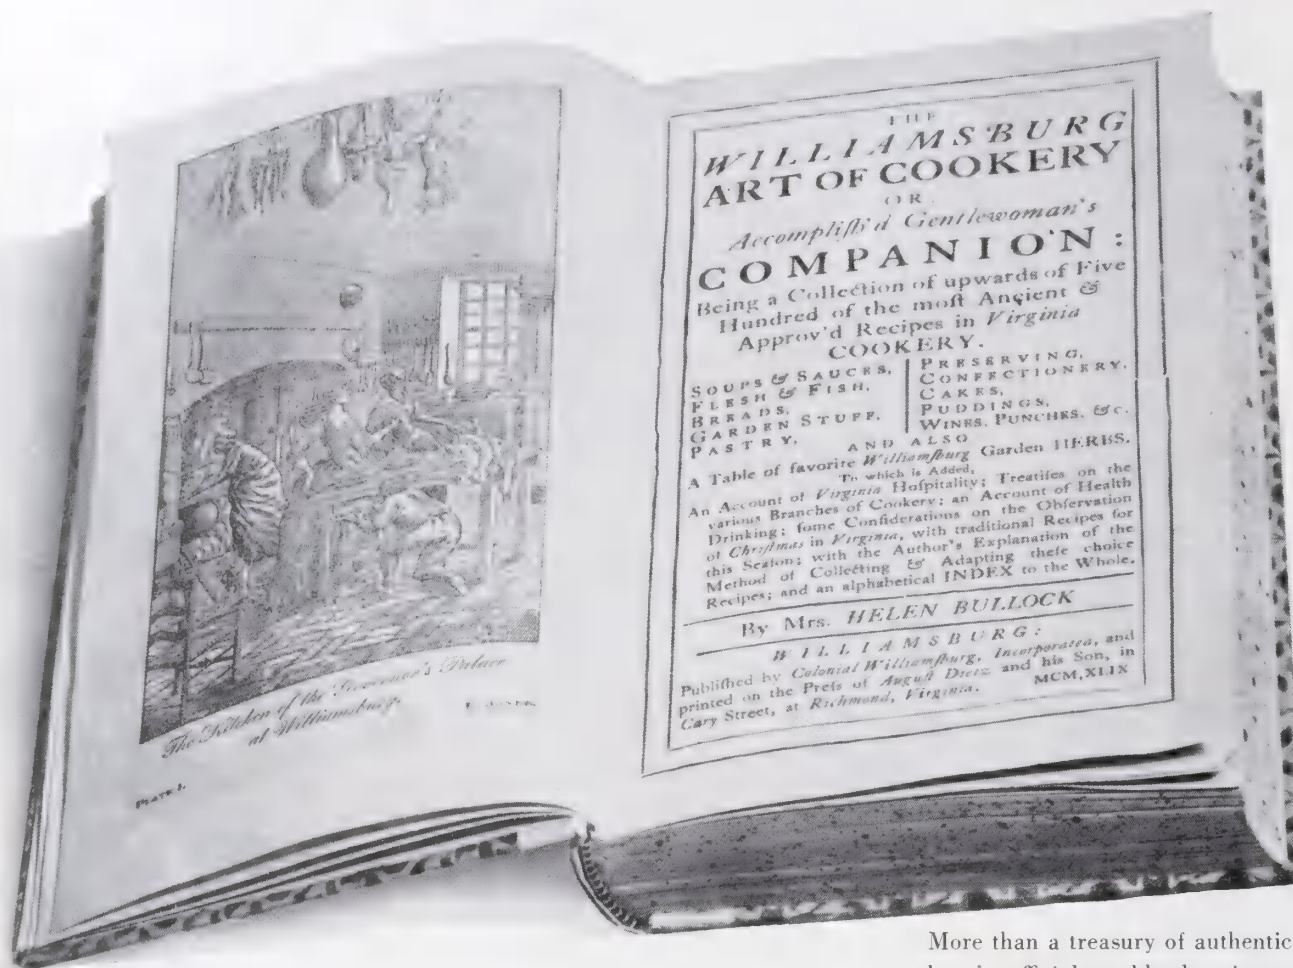 The Kitchen of the Governor's Palace
at Williamsburg
PLATE I.
THE
WILLIAMSBURG
ART OF COOKERY
OR
Accompliſh'd Gentlewoman's
COMPANION:
Being a Collection of upwards of Five
Hundred of the moſt Ancient &
Approv'd Recipes in Virginia
COOKERY.
SOUPS & SAUCES,
FLESH & FISH,
BREADS,
GARDEN STUFF,
PASTRY,
PRESERVING,
CONFECTIONERY,
CAKES,
PUDDINGS,
WINES, PUNCHES, &c.
AND ALSO
A Table of favorite Williamſburg Garden HERBS.
To which is Added,
An Account of Virginia Hoſpitality; Treatiſes on the
various Branches of Cookery; an Account of Health
Drinking; ſome Conſiderations on the Obſervation
of Chriſtmas in Virginia, with traditional Recipes for
this Seaſon; with the Author's Explanation of the
Method of Collecting & Adapting theſe choice
Recipes; and an alphabetical INDEX to the Whole.
By Mrs. HELEN BULLOCK
WILLIAMSBURG:
Publiſhed by Colonial Williamſburg, Incorporated, and
printed on the Preſs of Auguſt Dietz and his Son, in
Cary Street, at Richmond, Virginia. MCM,XLIX
More than a treasury of authentic